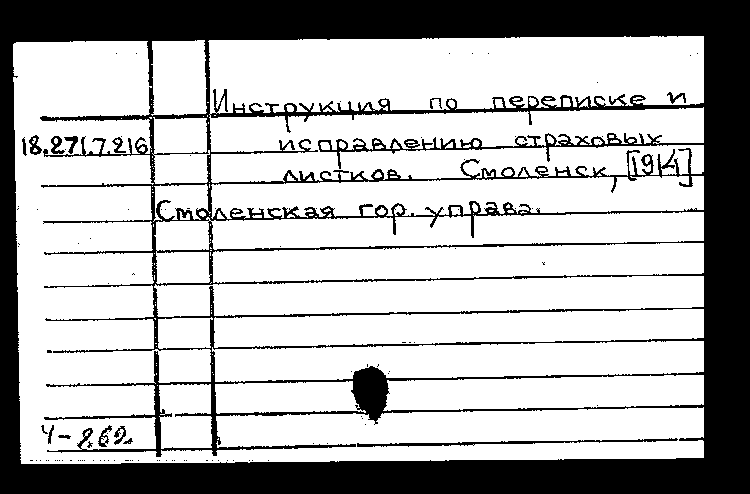 Инструкция по переписке и
18.271.7.216 исправлению страховых
листков. Смоленск, [1914]
Смоленская гор. управа.
4-862.